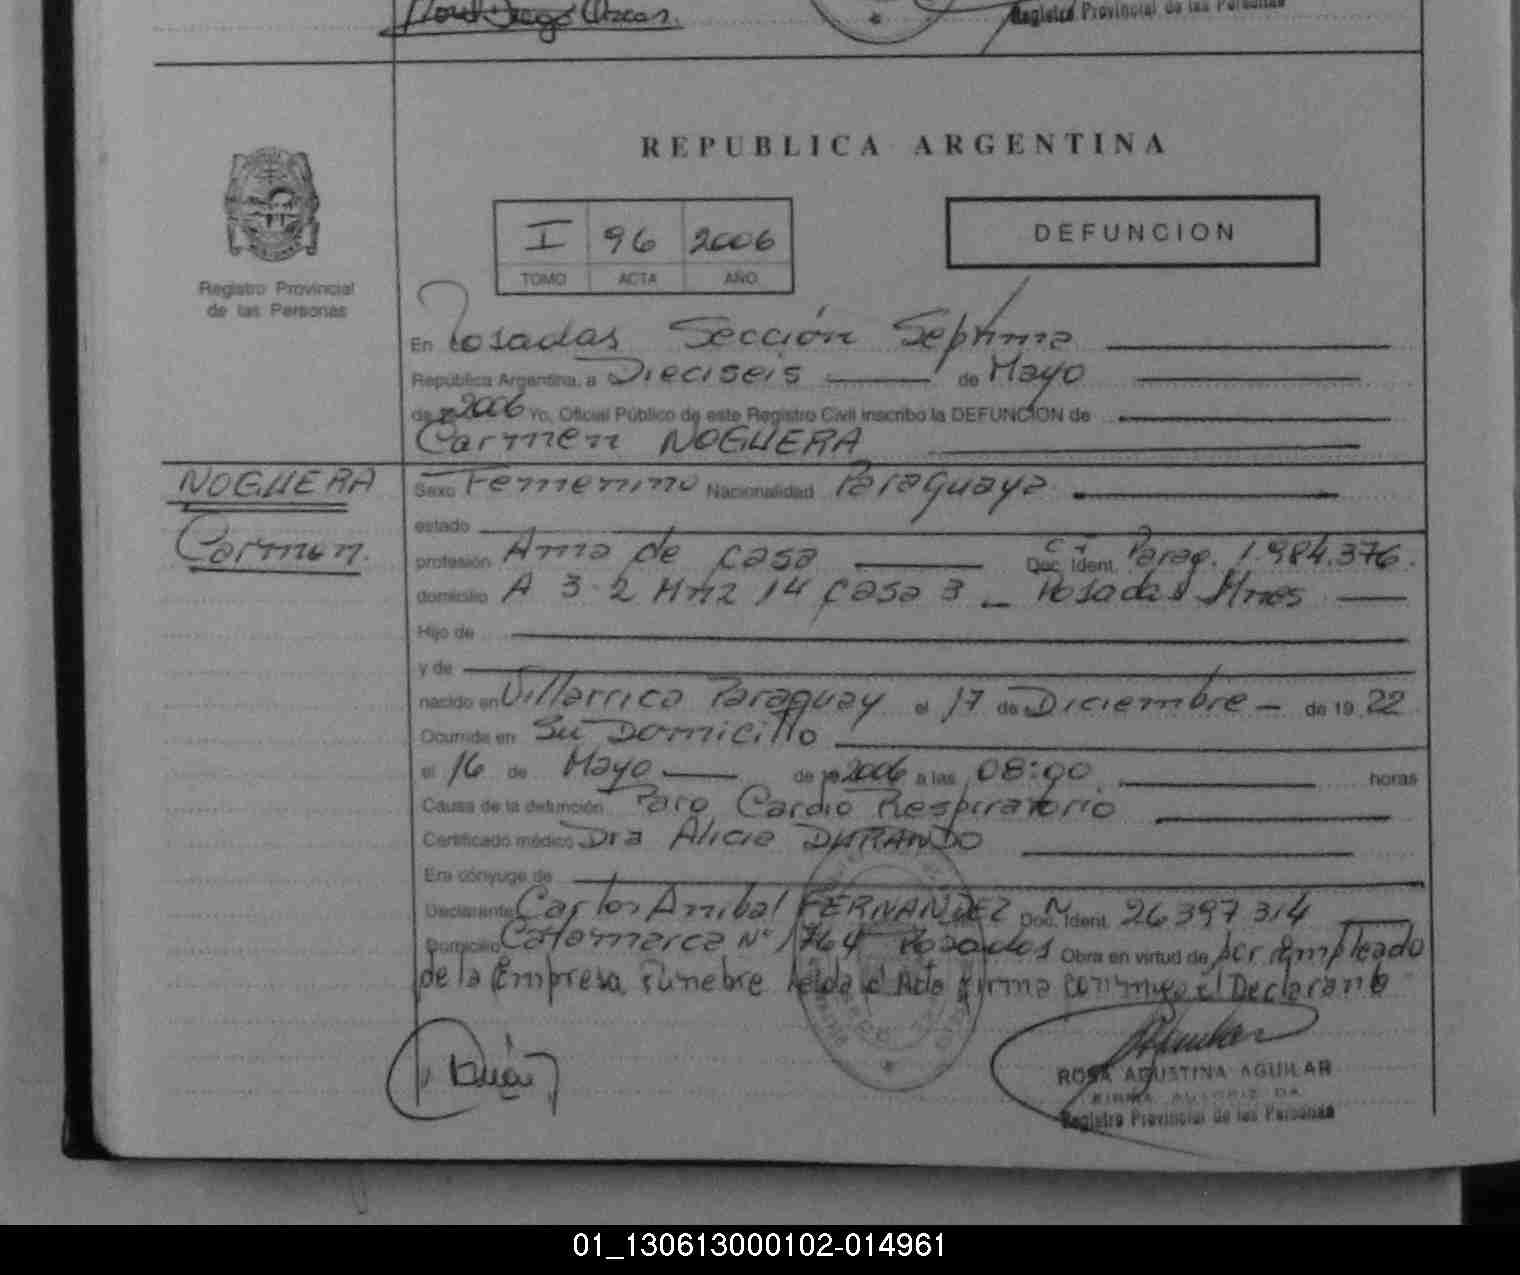 Registro Provincial de las Personas
REPUBLICA ARGENTINA
I 96 2006
TOMO ACTA AÑO
DEFUNCION
Registro Provincial
de las Personas
En Posadas Sección Septima
República Argentina, a Dieciseis de Mayo
de 2006 Yo, Oficial Público de este Registro Civil inscribo la DEFUNCION de
Carmen NOGUERA
NOGUERA
Carmen.
Sexo Femenino Nacionalidad Paraguaya
estado
profesión Ama de casa Doc. Ident. C I Parag. 1.984.376.
domicilio A 3-2 Mnz 14 casa 3 _ Posadas Mnes
Hijo de
y de
nacido en Villarrica Paraguay el 17 de Diciembre de 19 22
Ocurrida en Su Domicilio
el 16 de Mayo de 2006 a las 08:00 horas
Causa de la defunción Paro Cardio Respiratorio
Certificado médico Dra Alicia DURANDO
Era cónyuge de
Declarante Carlos Anibal FERNANDEZ Doc. Ident. 26.397.314
Domicilio Catamarca N° 1764 Posadas Obra en virtud de por empleado
de la Empresa Funebre Leida el Acta firma conmigo el Declarante
ROSA AGUSTINA AGUILAR
FIRMA AUTORIZADA
Registro Provincial de las Personas
01_130613000102-014961